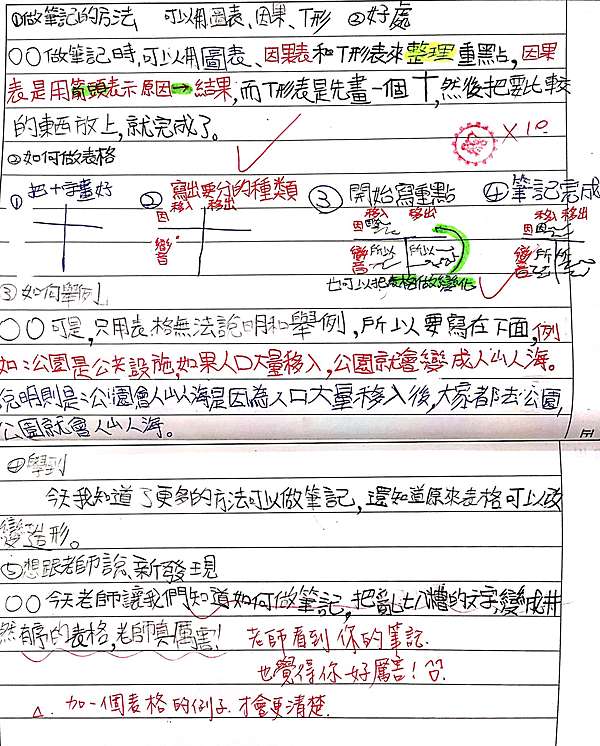 ①做筆記的方法 可以用圖表、因果、T形 ②好處
○○做筆記時,可以用圖表、因果表和T形表來整理重點,因果
表是用箭頭表示原因→結果,而T形表是先畫一個十,然後把要比較
的東西放上,就完成了。
×10
②如何做表格
① 把十字畫好 ② 寫出要分的種類 ③ 開始寫重點 ④筆記完成
移入 移出 移入 移出 移入 移出
因 因 因
變 變 所以 所以 變 所 所
音 音 音
也可以把表格做變化
③如何舉例
○○可是,只用表格無法說明和舉例,所以要寫在下面,例
如:公園是公共設施,如果人口大量移入,公園就會變成人山人海。
說明則是:公園會人山人海是因為人口大量移入後,大家都去公園,
公園就會人山人海。
④學到
今天我知道了更多的方法可以做筆記,還知道原來表格可以改
變造形。
⑤想跟老師說、新發現
○○今天老師讓我們知道如何做筆記,把亂七八糟的文字,變成井
然有序的表格,老師真厲害!
老師看到你的筆記.
也覺得你好厲害!
△. 加一個表格的例子.才會更清楚.